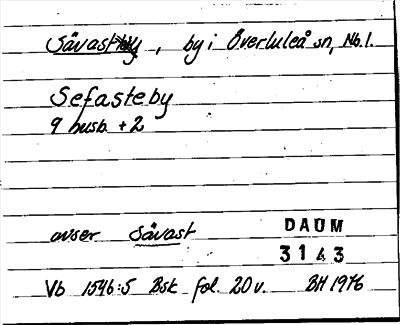 Sävast , by i Överluleå sn, Nb.l.
Sefasteby
9 husb. + 2
avser Sävast
DAUM
3143
Vb 1546:5 Bsk fol. 20 v. BH 1976